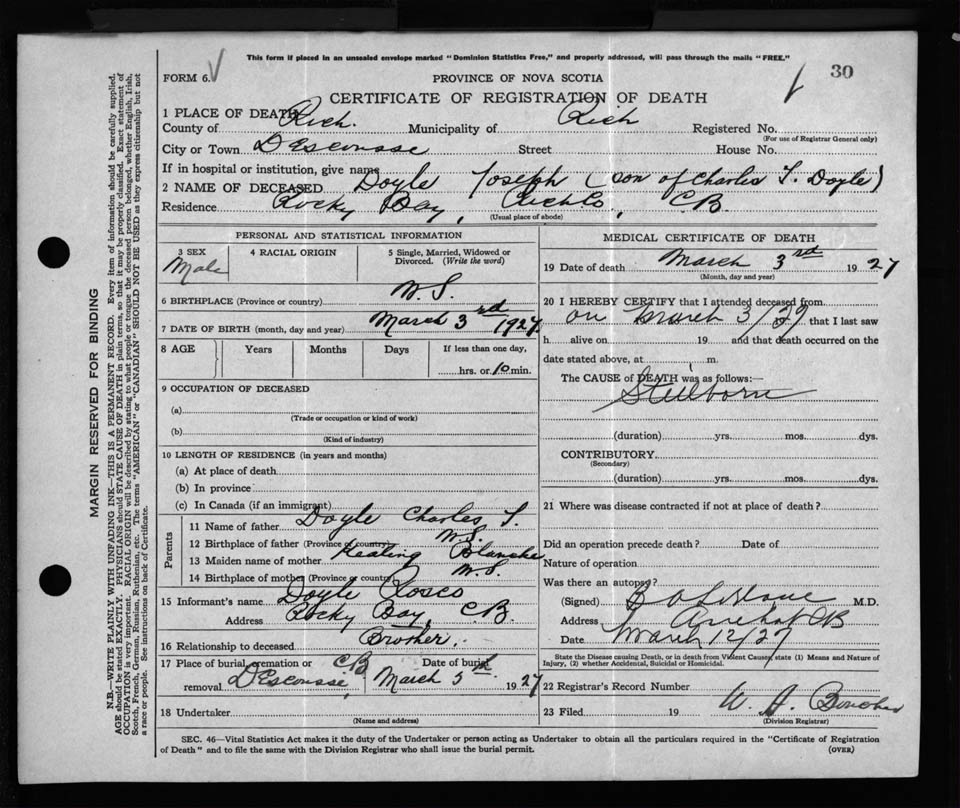 This form if placed in an unsealed envelope marked "Dominion Statistics Free," and properly addressed, will pass through the mails "FREE."
FORM 6.
PROVINCE OF NOVA SCOTIA
30
CERTIFICATE OF REGISTRATION OF DEATH
1 PLACE OF DEATH
County of Rich. Municipality of Rich Registered No.
(For use of Registrar General only)
City or Town D'Escousse Street House No.
If in hospital or institution, give name
2 NAME OF DECEASED Doyle Joseph (son of Charles T. Doyle)
Residence Rocky Bay, C.B.
(Usual place of abode)
PERSONAL AND STATISTICAL INFORMATION
3 SEX Male
4 RACIAL ORIGIN
5 Single, Married, Widowed or Divorced. (Write the word)
6 BIRTHPLACE (Province or country) N.S.
7 DATE OF BIRTH (month, day and year) March 3rd 1927
8 AGE Years Months Days If less than one day,
hrs. or 10 min.
9 OCCUPATION OF DECEASED
(a)
(Trade or occupation or kind of work)
(b)
(Kind of industry)
10 LENGTH OF RESIDENCE (in years and months)
(a) At place of death
(b) In province
(c) In Canada (if an immigrant)
Parents
11 Name of father Doyle Charles T.
12 Birthplace of father (Province or country) N.S.
13 Maiden name of mother Keating Blanche
14 Birthplace of mother (Province or country) N.S.
15 Informant's name Doyle Rosco
Address Rocky Bay, C.B.
16 Relationship to deceased Brother
17 Place of burial, cremation or removal D'Escousse, C.B.
Date of burial March 5th 1927
18 Undertaker
(Name and address)
MEDICAL CERTIFICATE OF DEATH
19 Date of death March 3rd 1927
(Month, day and year)
20 I HEREBY CERTIFY that I attended deceased from
on March 3/27 that I last saw
h alive on 19 and that death occurred on the
date stated above, at m.
The CAUSE of DEATH was as follows:—
Stillborn
(duration) yrs. mos. dys.
CONTRIBUTORY
(Secondary)
(duration) yrs. mos. dys.
21 Where was disease contracted if not at place of death?
Did an operation precede death? Date of
Nature of operation
Was there an autopsy?
(Signed) M.D.
Address Arichat CB
Date March 12/27
State the Disease causing Death, or in death from Violent Causes, state (1) Means and Nature of
Injury, (2) whether Accidental, Suicidal or Homicidal.
22 Registrar's Record Number
23 Filed 19 W. A.
(Division Registrar)
SEC. 46—Vital Statistics Act makes it the duty of the Undertaker or person acting as Undertaker to obtain all the particulars required in the "Certificate of Registration
of Death" and to file the same with the Division Registrar who shall issue the burial permit.
(OVER)
MARGIN RESERVED FOR BINDING
N.B.—WRITE PLAINLY WITH UNFADING INK—THIS IS A PERMANENT RECORD. Every item of information should be carefully supplied.
AGE should be stated EXACTLY. PHYSICIANS should STATE CAUSE OF DEATH in plain terms, so that it may be properly classified. Exact statement of
OCCUPATION is very important. RACIAL ORIGIN will be described by stating to what people or tongue the deceased person belonged, whether English, Irish,
Scotch, French, German, Russian, Ruthenian, etc. The terms "AMERICAN" or "CANADIAN" SHOULD NOT BE USED as they express citizenship but not
a race or people. See instructions on back of Certificate.